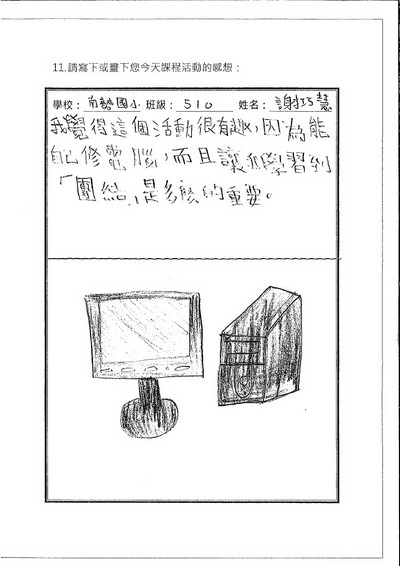 11.請寫下或畫下您今天課程活動的感想：
學校：南勢國小 班級：510 姓名：謝巧慧
我覺得這個活動很有趣，因為能
自己修電腦，而且讓我學習到
「團結」是多麼的重要。